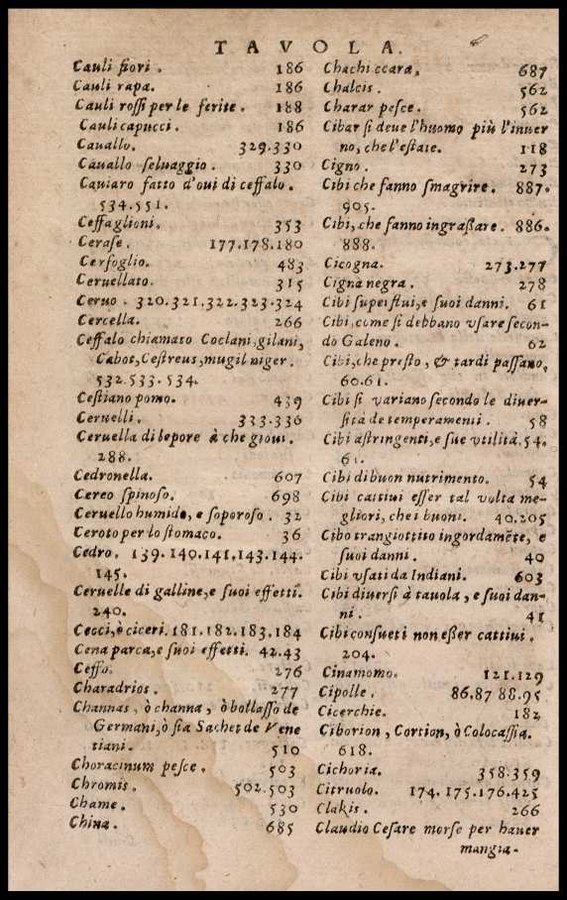 TAVOLA.
Cauli fiori. 186
Cauli rapa. 186
Cauli rossi per le ferite. 188
Cauli capucci. 186
Cauallo. 329.330
Cauallo seluaggio. 330
Cauiaro fatto d'oui di ceffalo.
534.551.
Ceffaglioni. 353
Cerase. 177.178.180
Cerfoglio. 483
Ceruellato. 315
Ceruo. 320.321.322.323.324
Cercella. 266
Ceffalo chiamato Coclani, gilani,
Cabos, Cestreus, mugil niger.
532.533.534.
Cestiano pomo. 439
Ceruelli. 333.336
Ceruella di lepore à che gioui.
288.
Cedronella. 607
Cereo spinoso. 698
Ceruello humido, e soporoso. 32
Ceroto per lo stomaco. 36
Cedro. 139.140.141.143.144.
145.
Ceruelle di galline, e suoi effetti.
240.
Cecci, ò ciceri. 181.182.183.184
Cena parca, e suoi effetti. 42.43
Ceffo. 276
Charadrios. 277
Channas, ò channa, ò bollasso de
Germani, ò sia Sachet de Vene
tiani. 510
Choracinum pesce. 503
Chromis. 502.503
Chame. 530
China. 685
Chachi ccara. 687
Chalcis. 562
Charar pesce. 562
Cibar si deue l'huomo più l'inuer
no, che l'estate. 118
Cigno. 273
Cibi che fanno smagrire. 887.
905.
Cibi, che fanno ingrassare. 886.
888.
Cicogna. 273.277
Cigna negra. 278
Cibi superflui, e suoi danni. 61
Cibi, come si debbano vsare secon-
do Galeno. 62
Cibi, che presto, & tardi passano.
60.61.
Cibi si variano secondo le diuer-
sità de temperamenti. 58
Cibi astringenti, e sue vtilità. 54.
61.
Cibi di buon nutrimento. 54
Cibi cattiui esser tal volta me-
gliori, che i buoni. 40.205
Cibo trangiottito ingordamẽte, e
suoi danni. 40
Cibi vsati da Indiani. 603
Cibi diuersi à tauola, e suoi dan-
ni. 41
Cibi consueti non esser cattiui.
204.
Cinamomo. 121.129
Cipolle. 86.87 88.95
Cicerchie. 182
Ciborion, Cortion, ò Colocassia.
618.
Cichoria. 358.359
Citruolo. 174.175.176.425
Clakis. 266
Claudio Cesare morse per hauer
mangia-